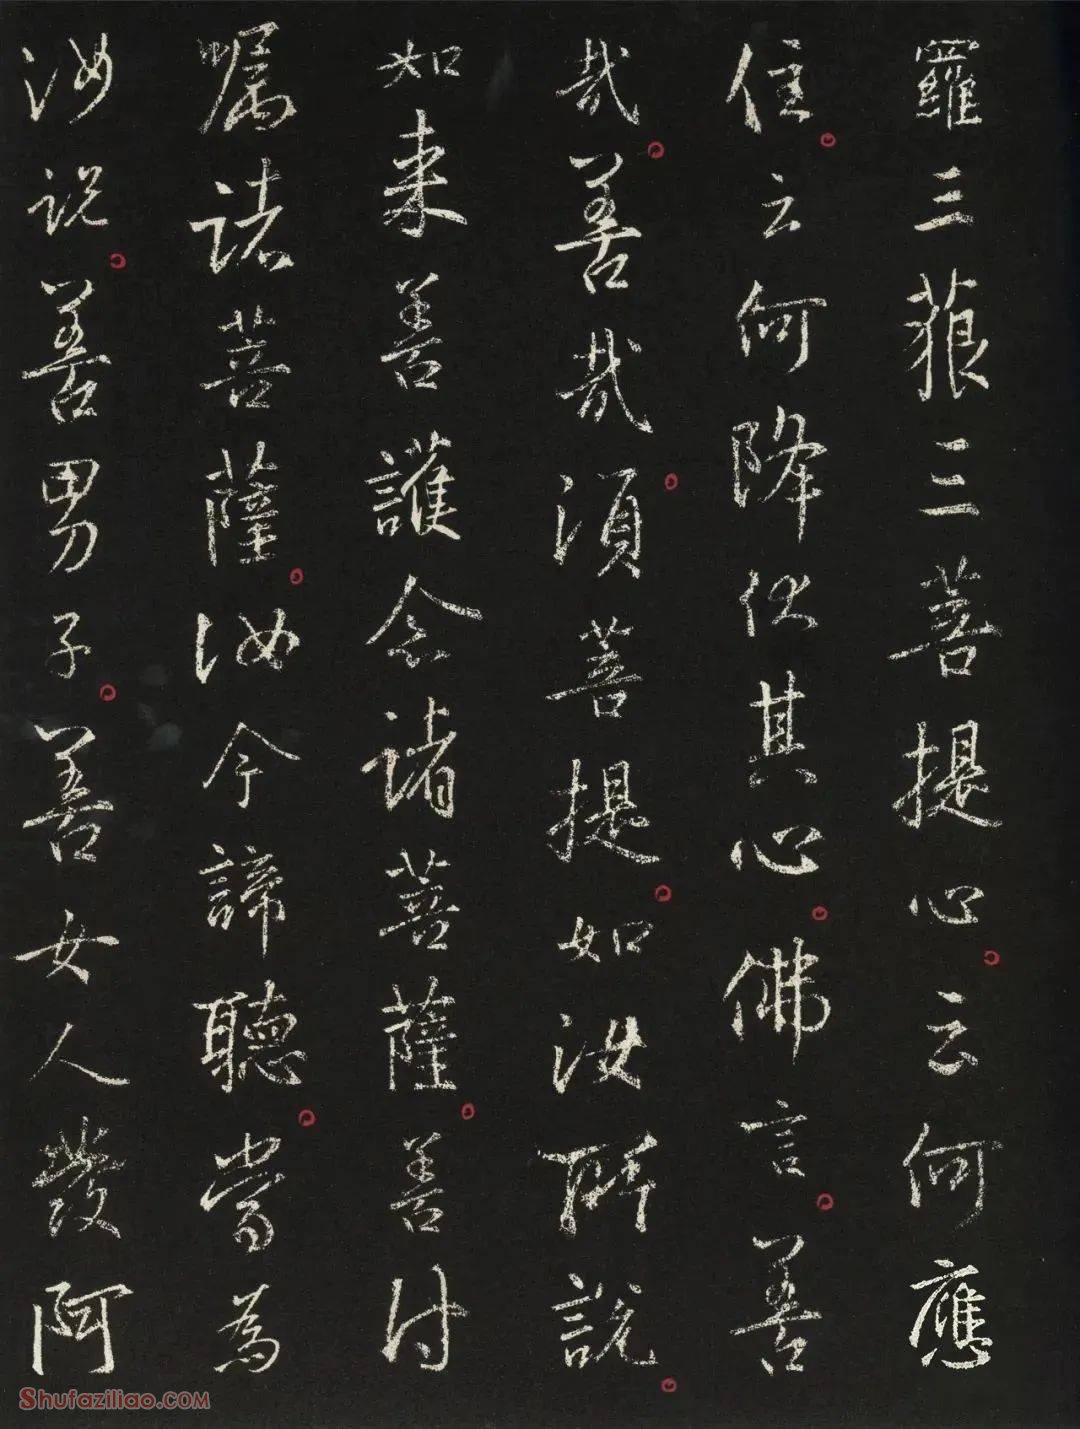 羅三藐三菩提心。云何應
住。云何降伏其心。佛言。善
哉。善哉。須菩提。如汝所説。
如来善護念諸菩薩。善付
嘱諸菩薩。汝今諦聽。當為
汝説。善男子。善女人發阿
Shufaziliao.com